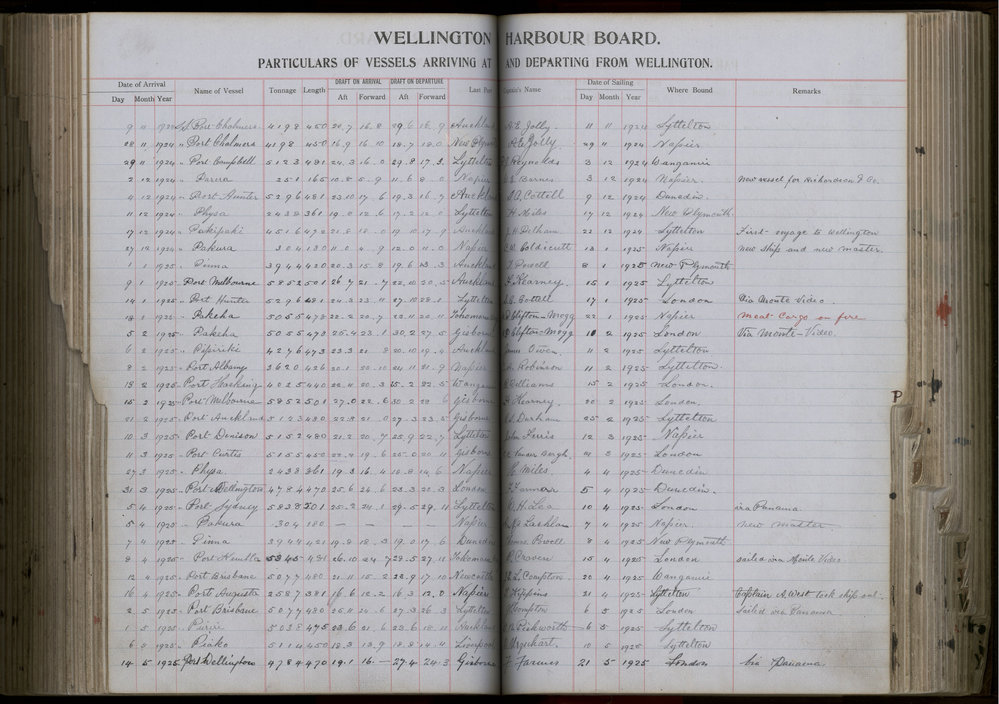 WELLINGTON HARBOUR BOARD.
PARTICULARS OF VESSELS ARRIVING AT AND DEPARTING FROM WELLINGTON.
Date of Arrival Name of Vessel Tonnage Length DRAFT ON ARRIVAL DRAFT ON DEPARTURE Last Port Captain's Name Date of Sailing Where Bound Remarks
Day Month Year Aft Forward Aft Forward Day Month Year
9 11 1924 Port Chalmers 4198 450 20.7 16.8 Auckland Jolly 11 11 1924 Lyttelton
28 11 1924 Port Chalmers 4198 450 16.9 16.10 18.7 18.0 New Plym Jolly 29 11 1924 Napier
29 11 1924 Port Campbell 5123 481 24.3 16.0 29.8 17.3 Lyttelton Reynolds 3 12 1924 Wanganui
2 12 1924 251 165 10.8 5.9 11.6 8.0 Napier Barnes 3 12 1924 Napier. New vessel for Richardson & Co.
4 12 1924 Port Hunter 5296 481 23.10 17.6 19.3 16.7 Auckland Cottell 9 12 1924 Dunedin.
11 12 1924 Physa 2438 361 19.0 12.6 17.2 12.0 Lyttelton H Miles 17 12 1924 New Plymouth.
17 12 1924 Pakipaki 4516 472 21.8 18.0 19.10 17.9 Auckland Pelham 22 12 1924 Lyttelton First voyage to Wellington
27 12 1924 Pakura 304 180 11.0 4.9 12.0 11.0 Napier Coldicutt 13 1 1925 Napier New ship and new master.
1 1 1925 Pinna 3944 420 20.3 15.8 19.6 Auckland Powell 8 1 1925 New Plymouth
9 1 1925 Port Melbourne 5852 501 26.7 21.7 22.10 20.5 Auckland Kearney 15 1 1925 Lyttelton
14 1 1925 Port Hunter 5296 481 24.3 23.11 27.10 28.1 Lyttelton Cottell 17 1 1925 London Via Monte Video.
18 1 1925 Pakeha 5055 478 22.2 20.7 22.11 20.11 Yokohama Clifton-Mogg 22 1 1925 Napier Meat Cargo on fire
5 2 1925 Pakeha 5055 478 25.4 23.1 30.2 27.5 Gisborne Clifton-Mogg 10 2 1925 London Via Monte-Video.
6 2 1925 Pipiriki 4276 473 23.3 21.8 20.10 19.4 Auckland Owen 11 2 1925 Lyttelton
8 2 1925 Port Albany 3620 426 20.1 20.10 24.11 21.9 Napier Robinson 11 2 1925 Lyttelton.
13 2 1925 Port Hacking 4025 440 22.11 20.3 25.2 22.5 Wangan Williams 15 2 1925 London.
15 2 1925 Port Melbourne 5852 501 27.0 22.6 Gisborne Kearney 20 2 1925 London.
21 2 1925 Port Auckland 5123 480 22.8 21.0 27.3 23.5 Gisborne Durham 25 2 1925 Lyttelton
10 3 1925 Port Denison 5152 480 21.2 20.7 25.9 22.7 Lyttelton John Ferris 12 3 1925 Napier
11 3 1925 Port Curtis 5155 450 22.7 19.6 25.0 20.11 Gisborne 3 1925 London
27 3 1925 Physa. 2438 361 19.3 16.4 10.8 14.6 Napier Miles 4 4 1925 Dunedin
31 3 1925 Port Wellington 4784 470 25.6 24.6 23.3 20.3 London Farmar 5 4 1925 Dunedin.
5 4 1925 Port Sydney 5838 501 25.2 24.1 29.5 29.11 Lyttelton H. Lea 10 4 1925 London via Panama
5 4 1925 Pakura 304 180 — — — — Napier Lachlan 7 4 1925 Napier. New master
7 4 1925 Pinna 3944 421 19.8 18.3 19.0 17.6 Dunedin Powell 8 4 1925 New Plymouth
8 4 1925 Port Kembla 5345 481 26.10 24.7 29.5 27.11 Yokohama Craven 15 4 1925 London sailed via Monte Video
12 4 1925 Port Brisbane 5077 480 21.11 15.2 22.9 17.10 Newcastle Compton 20 4 1925 Wanganui
16 4 1925 Port Augusta 2587 381 16.6 12.2 16.3 12.0 Napier 21 4 1925 Lyttelton Captain A. West took ship out
2 5 1925 Port Brisbane 5077 480 25.11 24.6 27.3 26.3 Lyttelton Compton 6 5 1925 London Sailed via Panama
1 5 1925 5038 475 23.6 21.6 23.6 18.11 Auckland 6 5 1925 Lyttelton
6 5 1925 Piako 5114 450 18.3 13.9 18.8 14.4 Liverpool Urquhart. 10 5 1925 Lyttelton
14 5 1925 Port Wellington 4784 470 19.1 16.— 27.4 24.3 Gisborne Farmer 21 5 1925 London Via Panama.